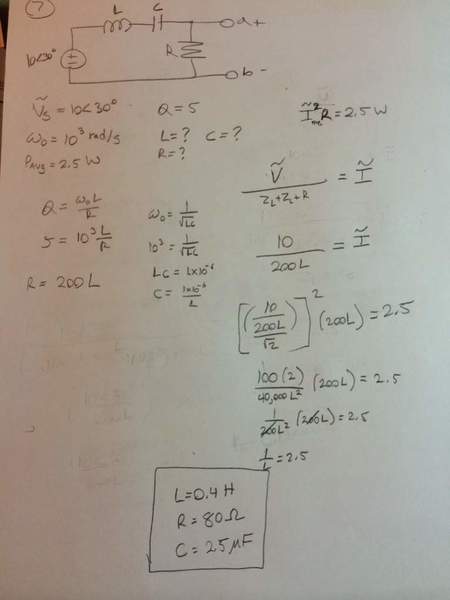 7
L C
10<30°
R
a+
b -
Ṽs = 10<30°
ω₀ = 10³ rad/s
P_AVG = 2.5 W
Q = 5
L = ? C = ?
R = ?
Ĩ²R = 2.5 W
Q = ω₀L/R
5 = 10³ L/R
R = 200 L
ω₀ = 1/√LC
10³ = 1/√LC
LC = 1x10⁻⁶
C = 1x10⁻⁶/L
Ṽ/(Z_L+Z_L+R) = Ĩ
10/200L = Ĩ
[((10/200L)/√2)]² (200L) = 2.5
100(2)/40,000L² (200L) = 2.5
1/200L² (200L) = 2.5
1/L = 2.5
L=0.4 H
R = 80Ω
C = 2.5 μF